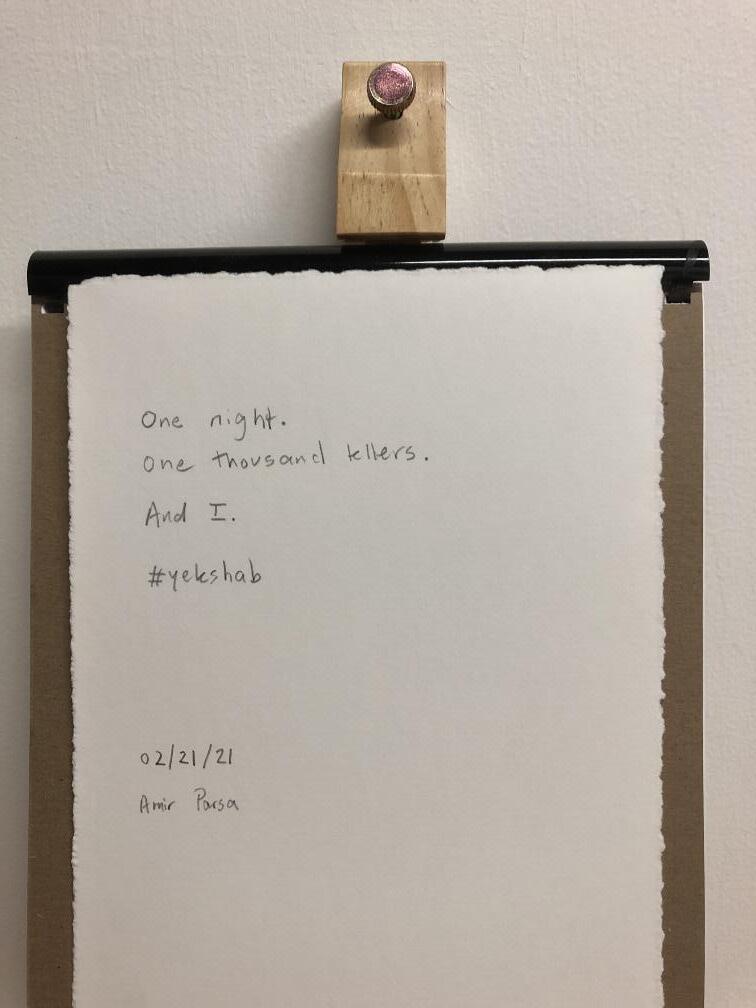 One night.
One thousand tellers.
And I.
#yekshab
02/21/21
Amir Parsa